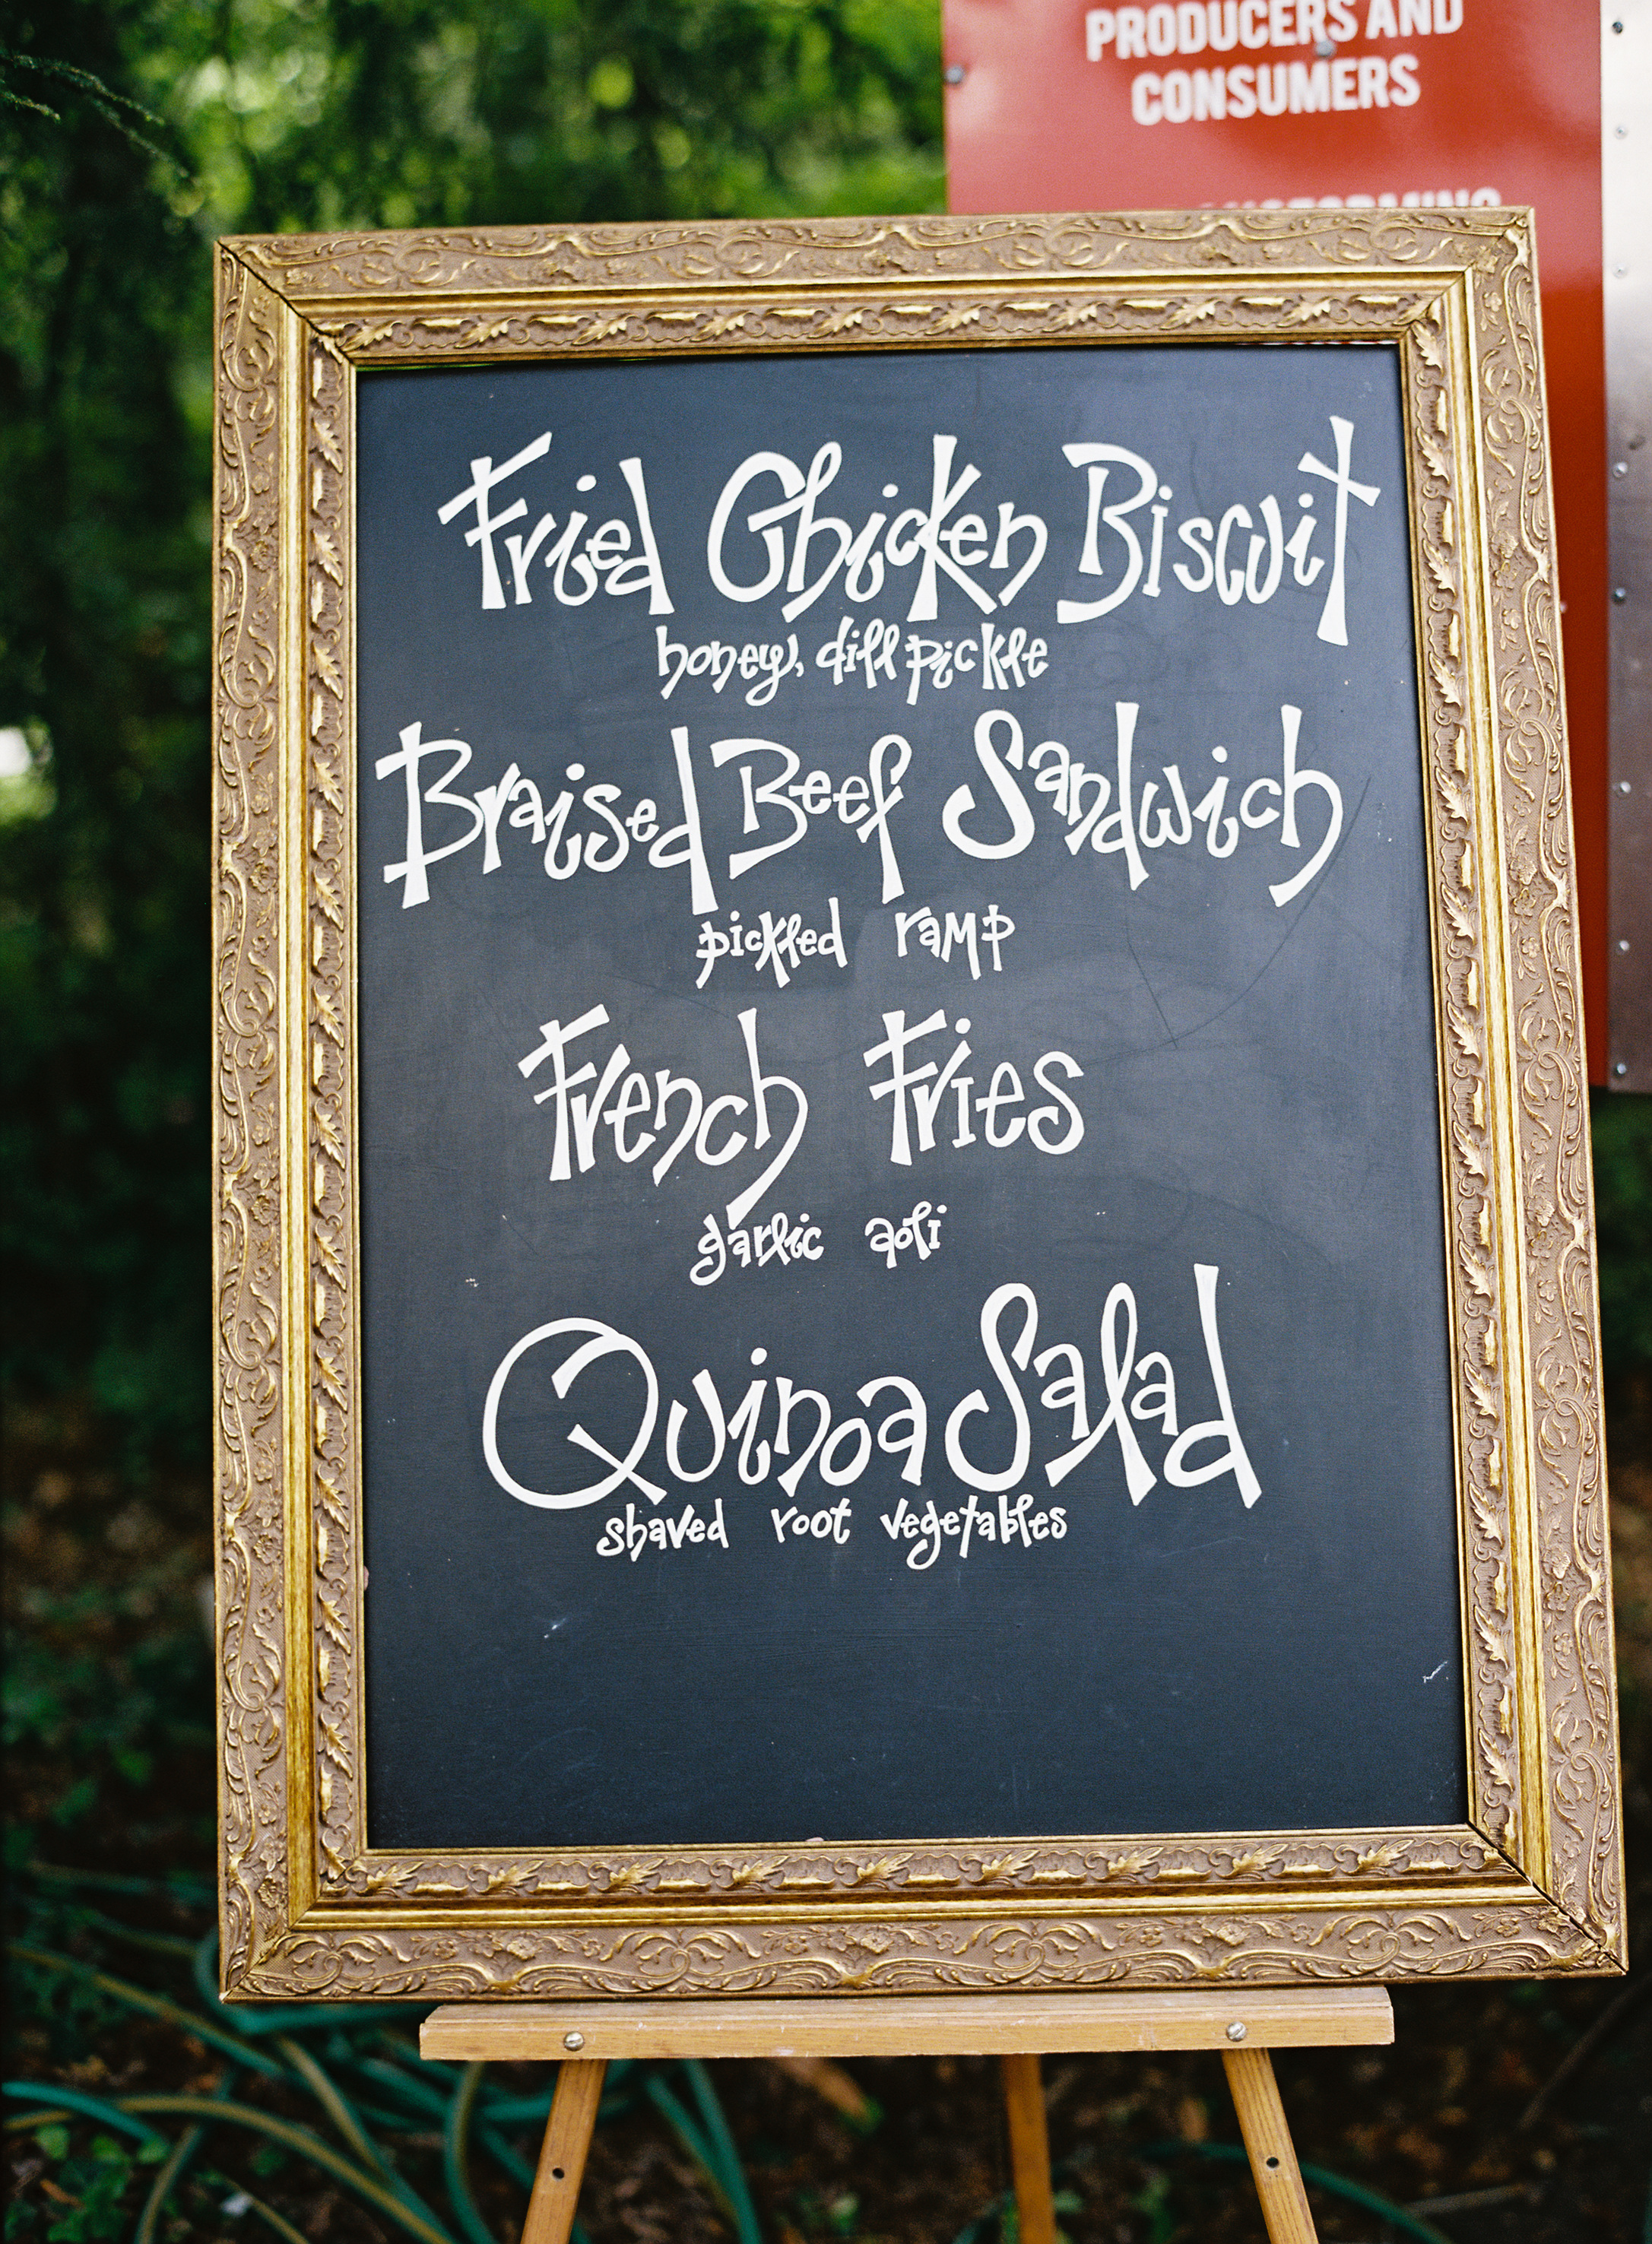 PRODUCERS AND
CONSUMERS
Fried Chicken Biscuit
honey, dill pickle
Braised Beef Sandwich
pickled ramp
French Fries
garlic aoli
Quinoa Salad
shaved root vegetables